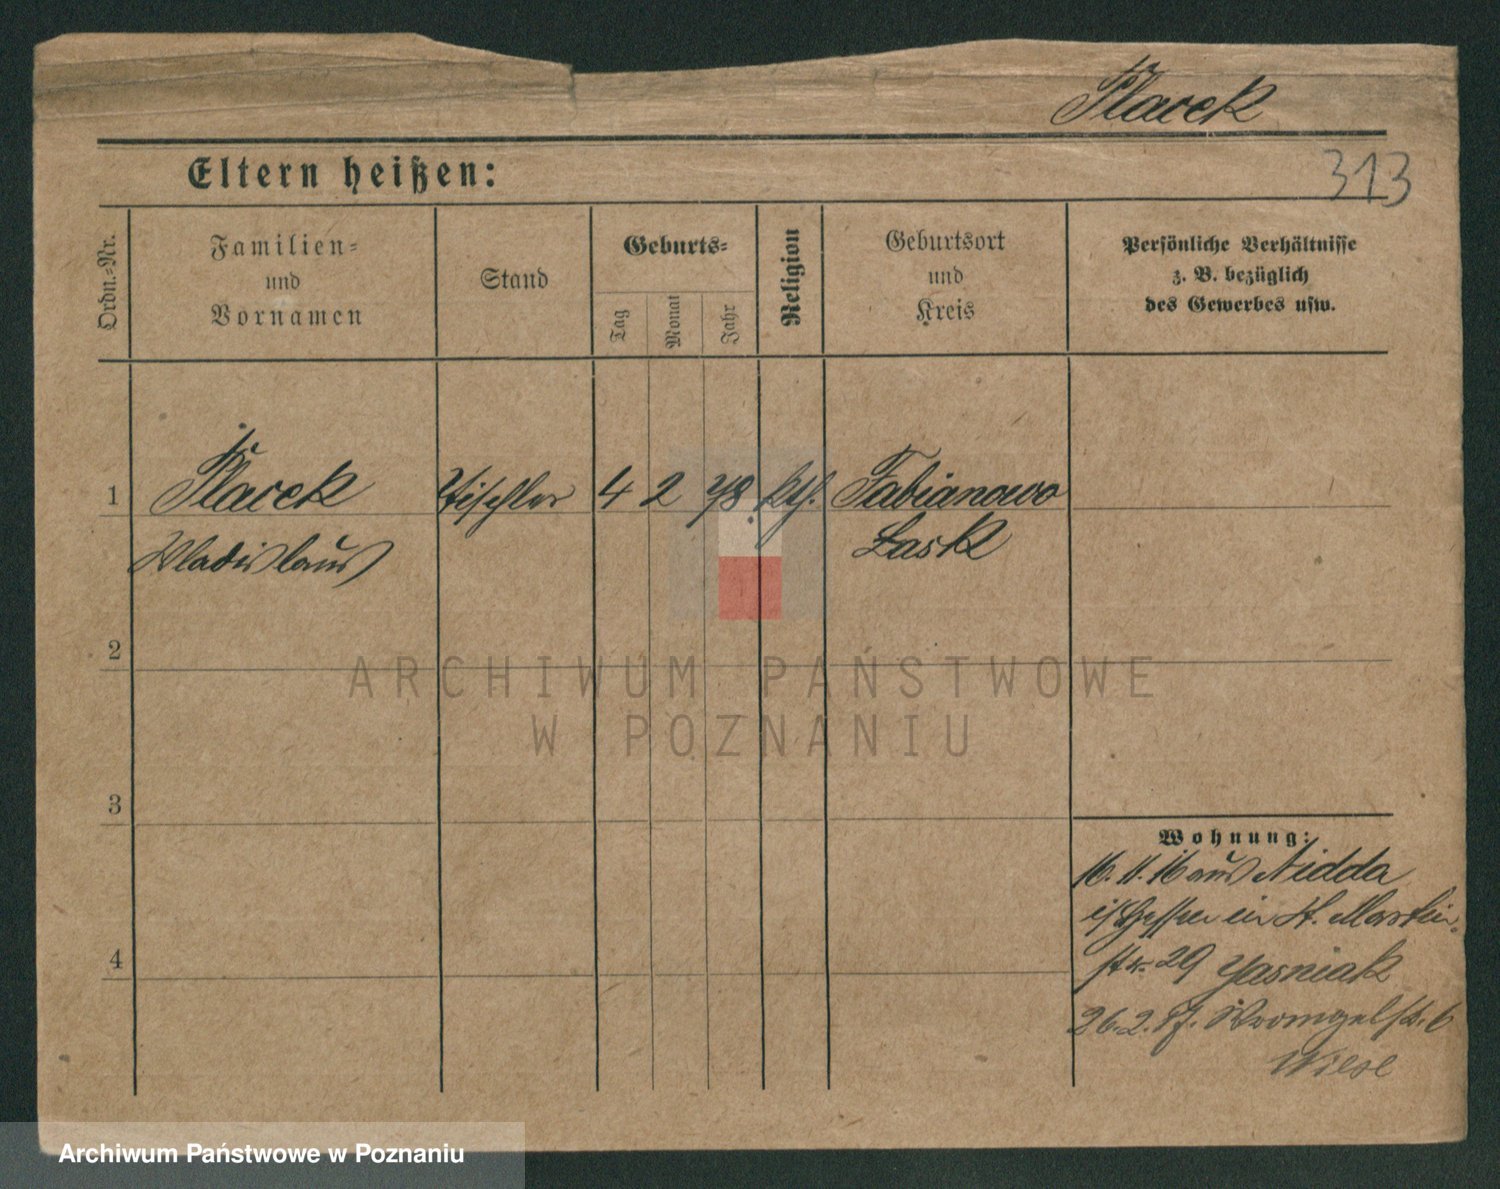 Placek
Eltern heißen:
313
Ordn.-Nr.
Familien-
und
Vornamen
Stand
Geburts-
Tag
Monat
Jahr
Religion
Geburtsort
und
Kreis
Persönliche Verhältnisse
z. B. bezüglich
des Gewerbes usw.
1
Placek
Tischler
4
2
78
kth.
Fabianowo
Wladislaus
Lask
2
3
4
Wohnung:
16. 11. 16 aus Nidda
i/Hessen in St. Martin-
str. 29 Jasniak
26. 2. 17. Wrangelstr. 6
Wiese
ARCHIWUM PAŃSTWOWE
W POZNANIU
Archiwum Państwowe w Poznaniu